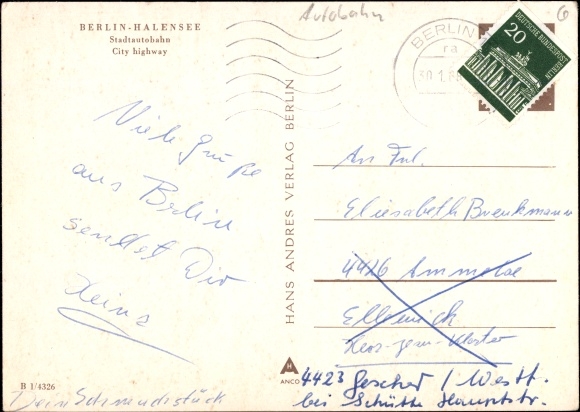 BERLIN-HALENSEE
Stadtautobahn
City highway
Autobahn
6
BERLIN
ra
30.1.68
DEUTSCHE BUNDESPOST
BERLIN
20
Viele Grüße
aus Berlin
sendet Dir
Heinz
HANS ANDRES VERLAG BERLIN
An Frl.
Eliesabeth Brenkmann
4426
Ellewick
4423 Gescher / Westf.
bei Schütte Hauptstr.
H
ANCO
B 1/4326
Dein Schmuckstück